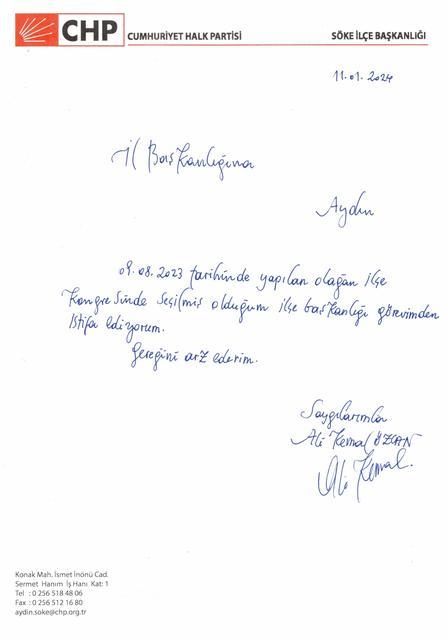 CHP CUMHURİYET HALK PARTİSİ SÖKE İLÇE BAŞKANLIĞI
11.01.2024
İl Başkanlığına
Aydın
09.08.2023 tarihinde yapılan olağan ilçe
Kongresinde seçilmiş olduğum ilçe başkanlığı görevimden
istifa ediyorum.
Gereğini arz ederim.
Saygılarımla
Ali Kemal ÖZCAN
Ali Kemal.
Konak Mah. İsmet İnönü Cad.
Sermet Hanım İş Hanı Kat: 1
Tel : 0 256 518 48 06
Fax : 0 256 512 16 80
aydin.soke@chp.org.tr